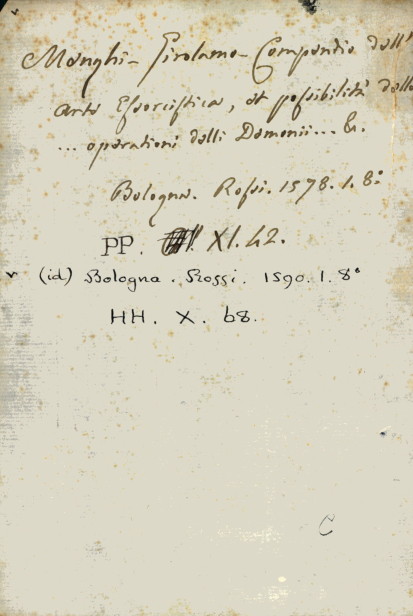 Menghi - Girolamo - Compendio dell'
arte Essorcistica, et possibilità delle
... operationi delli Demonii ... &.
Bologna. Rossi. 1578. 1. 8°
PP. XI. 42.
(id) Bologna. Rossi. 1590. 1. 8°
HH. X. 68.
C